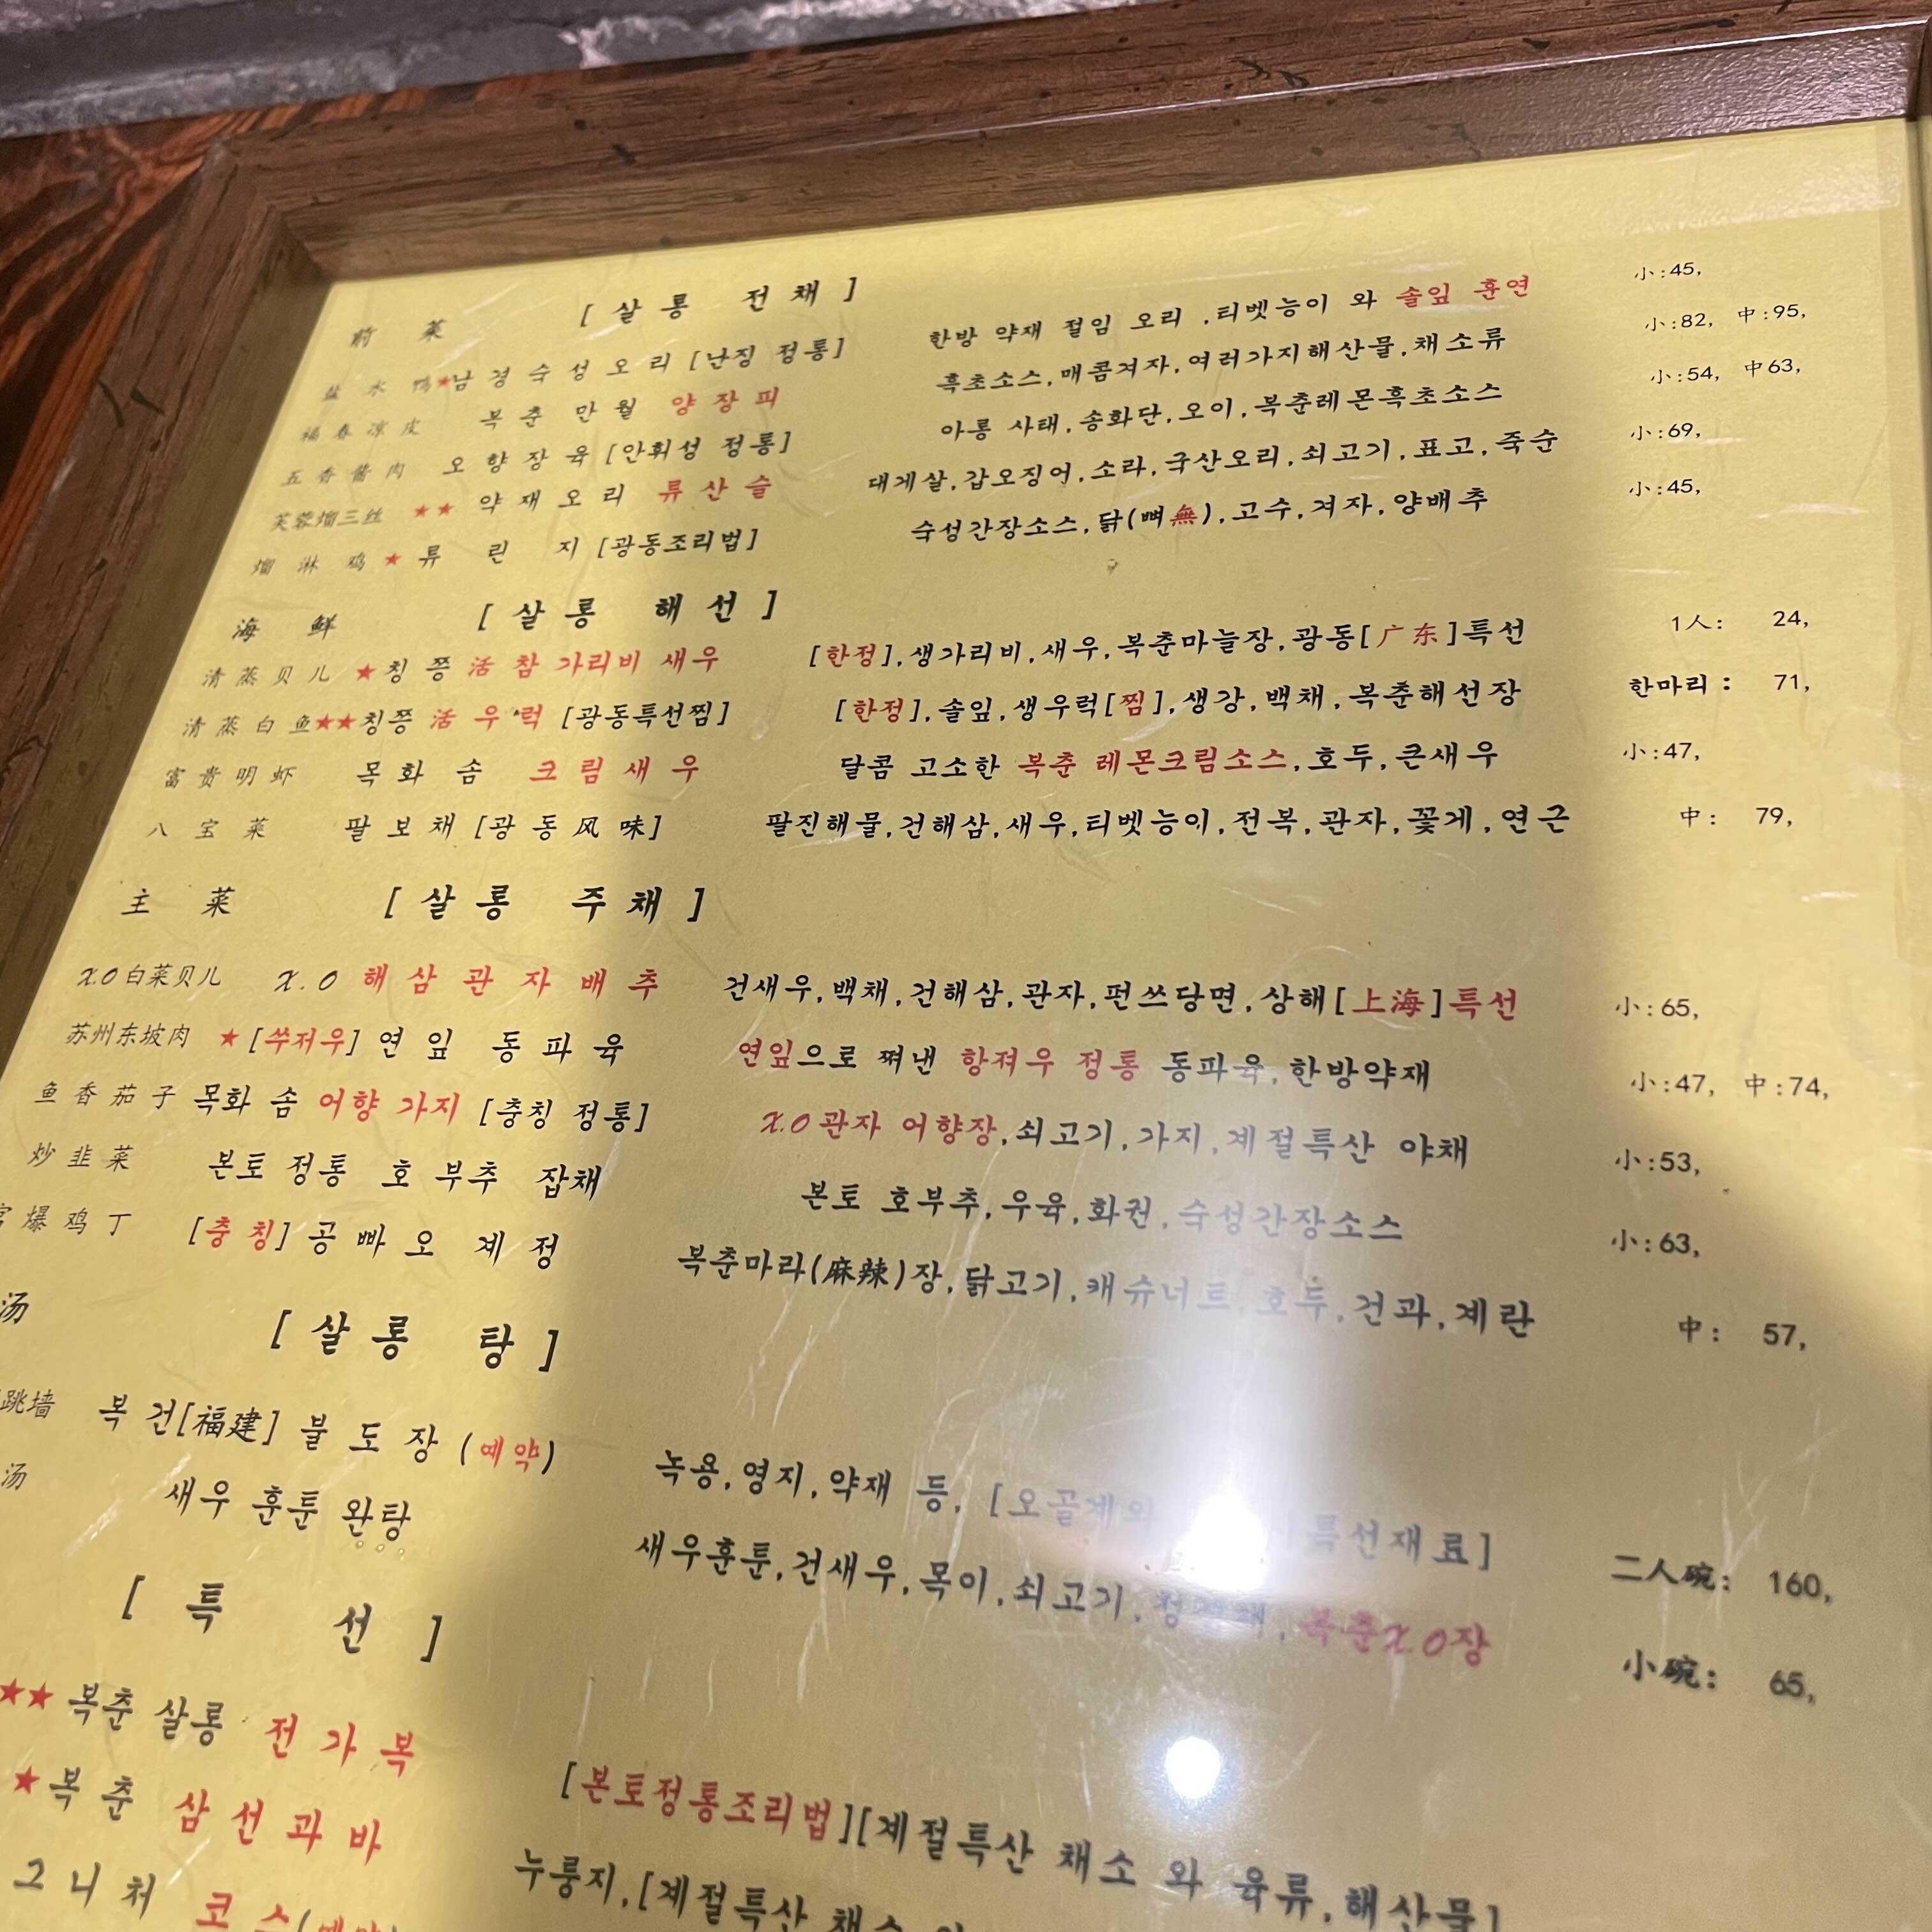 前 菜 [ 살 롱 전 채 ]
盐 水 鸭 ★남 경 숙 성 오 리 [난징 정통] 한방 약재 절임 오리 ,티벳능이 와 솔잎 훈연 小:45,
福 春 凉 皮 복 춘 만 월 양 장 피 흑초소스,매콤겨자,여러가지해산물,채소류 小:82, 中:95,
五 香 酱 肉 오 향 장 육 [안휘성 정통] 아롱 사태,송화단,오이,복춘레몬흑초소스 小:54, 中63,
芙蓉熘三丝 ★★ 약 재 오 리 류 산 슬 대게살,갑오징어,소라,국산오리,쇠고기,표고,죽순 小:69,
熘 淋 鸡 ★ 류 린 지 [광동조리법] 숙성간장소스,닭(뼈無),고수,겨자,양배추 小:45,
海 鲜 [ 살 롱 해 선 ]
清 蒸 贝 儿 ★칭 쯩 活 참 가리비 새우 [한정],생가리비,새우,복춘마늘장,광동[广东]특선 1人: 24,
清 蒸 白 鱼★★칭쯩 活 우 럭 [광동특선찜] [한정],솔잎,생우럭[찜],생강,백채,복춘해선장 한마리: 71,
富 贵 明 虾 목 화 솜 크 림 새 우 달콤 고소한 복춘 레몬크림소스,호두,큰새우 小:47,
八 宝 菜 팔 보 채 [광 동 风 味] 팔진해물,건해삼,새우,티벳능이,전복,관자,꽃게,연근 中: 79,
主 菜 [ 살 롱 주 채 ]
X.O白菜贝儿 X.O 해 삼 관 자 배 추 건새우,백채,건해삼,관자,펀쓰당면,상해[上海]특선 小:65,
苏州东坡肉 ★[쑤저우] 연 잎 동 파 육 연잎으로 쪄낸 항져우 정통 동파육,한방약재 小:47, 中:74,
鱼 香 茄 子 목화 솜 어향 가지 [충칭 정통] X.O관자 어향장,쇠고기,가지,계절특산 야채 小:53,
炒 韭 菜 본토 정통 호 부추 잡채 본토 호부추,우육,화권,숙성간장소스 小:63,
爆 鸡 丁 [충 칭] 공 빠 오 계 정 복춘마라(麻辣)장,닭고기,캐슈너트,호두,건과,계란 中: 57,
汤 [ 살 롱 탕 ]
跳墙 복 건[福建] 불 도 장 (예약) 녹용,영지,약재 등, [오골계와 특선재료] 二人碗: 160,
汤 새우 훈툰 완탕 새우훈툰,건새우,목이,쇠고기, 복춘X.O장 小碗: 65,
[ 특 선 ]
★★ 복춘 살롱 전 가 복 [본토정통조리법][계절특산 채소 와 육류,해산물]
★복 춘 삼 선 과 바 누룽지,[계절특산 채소
그 니 처 코 스(예약)